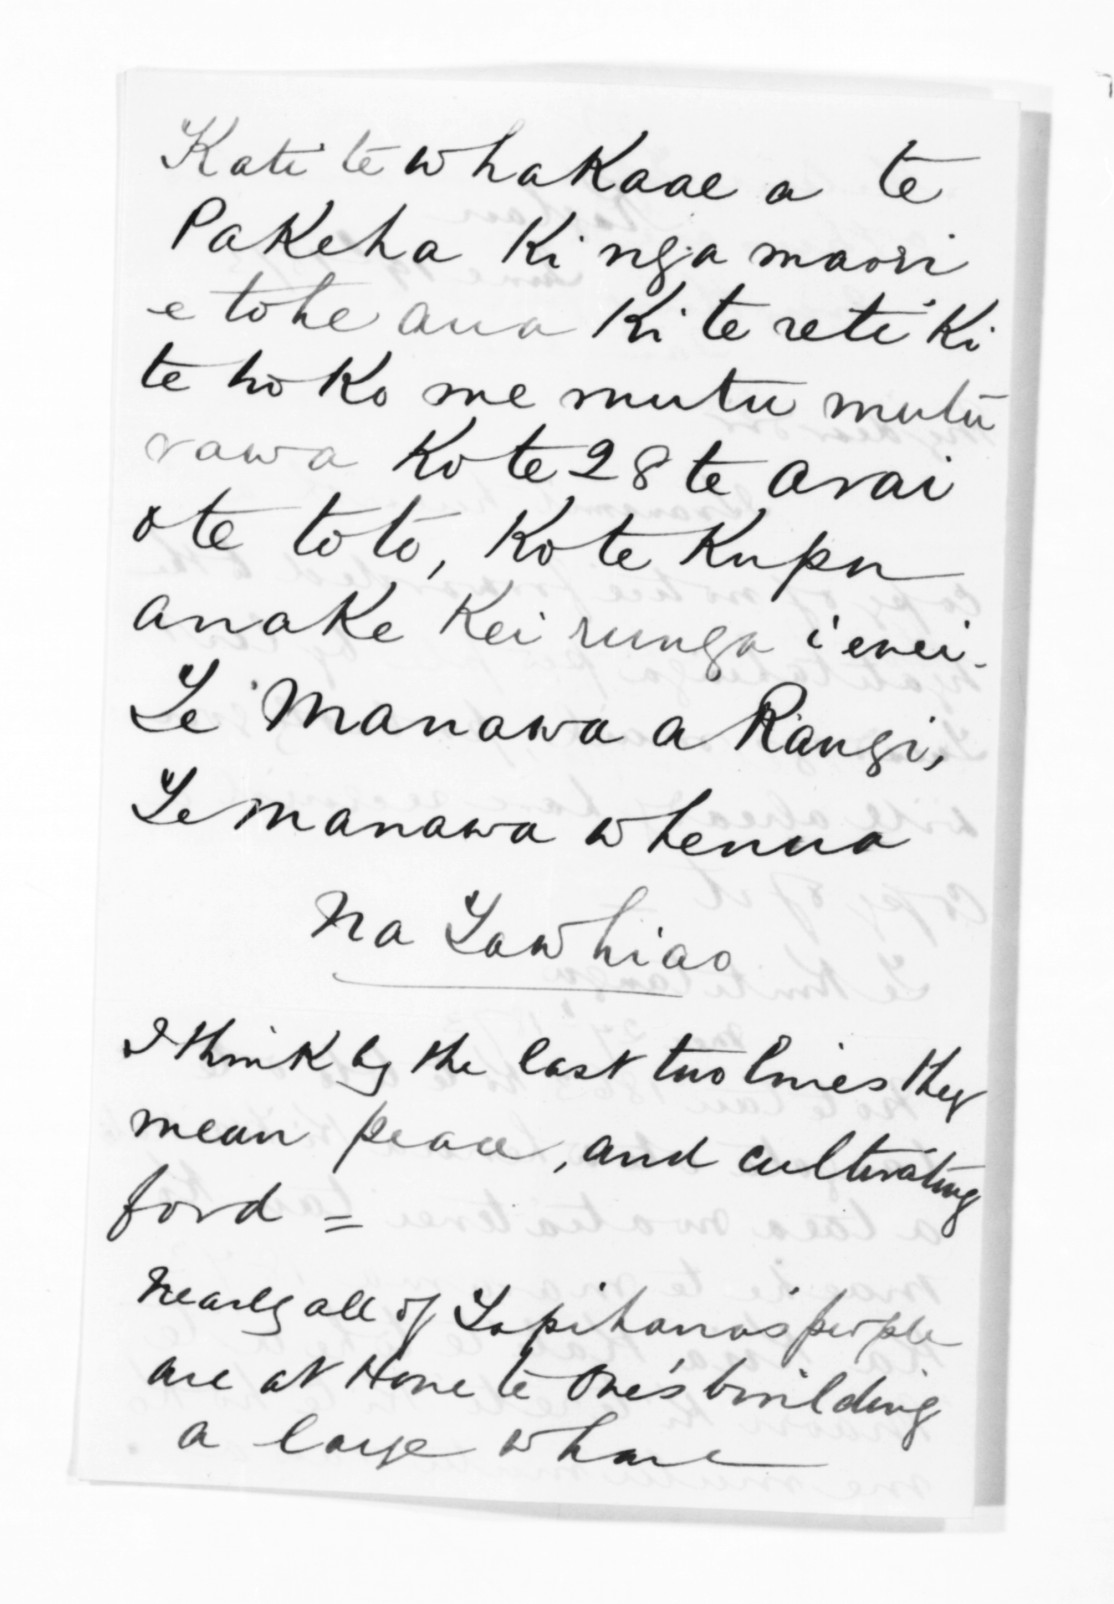 Kati te whakaae a te
Pakeha Ki nga maori
e tohe ana Ki te reti Ki
te hoKo me mutu mutu
rawa Ko te 28 te arai
o te toto, Ko te Kupu
anake Kei runga i enei.
Te Manawa a Rangi,
Te manawa whenua
Na Tawhiao
I think by the last two lines they
mean peace, and cultivating
food =
Nearly all of Tapihana's people
are at Hone te One's building
a large whare